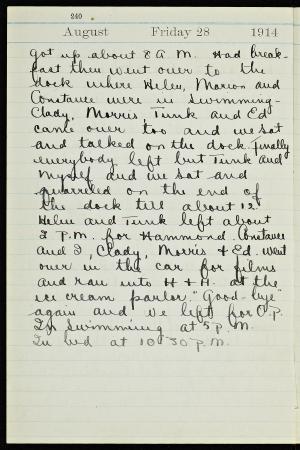 240
August Friday 28 1914
Got up about 8 A.M. Had break-
fast then went over to the
dock where Helen, Marion and
Constance were in swimming-
Clady, Morris, Tunk and Ed
came over too and we sat
and talked on the dock. Finally
everybody left but Tunk and
myself and we sat and
quarreled on the end of
the dock till about 12.
Helen and Tunk left about
2 P.M. for Hammond. Constance
and I, Clady, Morris & Ed. went
over in the car for films
and ran into H & H. at the
ice cream parlor. "Good-bye"
again and we left for C.P.
In swimming at 5 P.M.
In bed at 10:30 P.M.